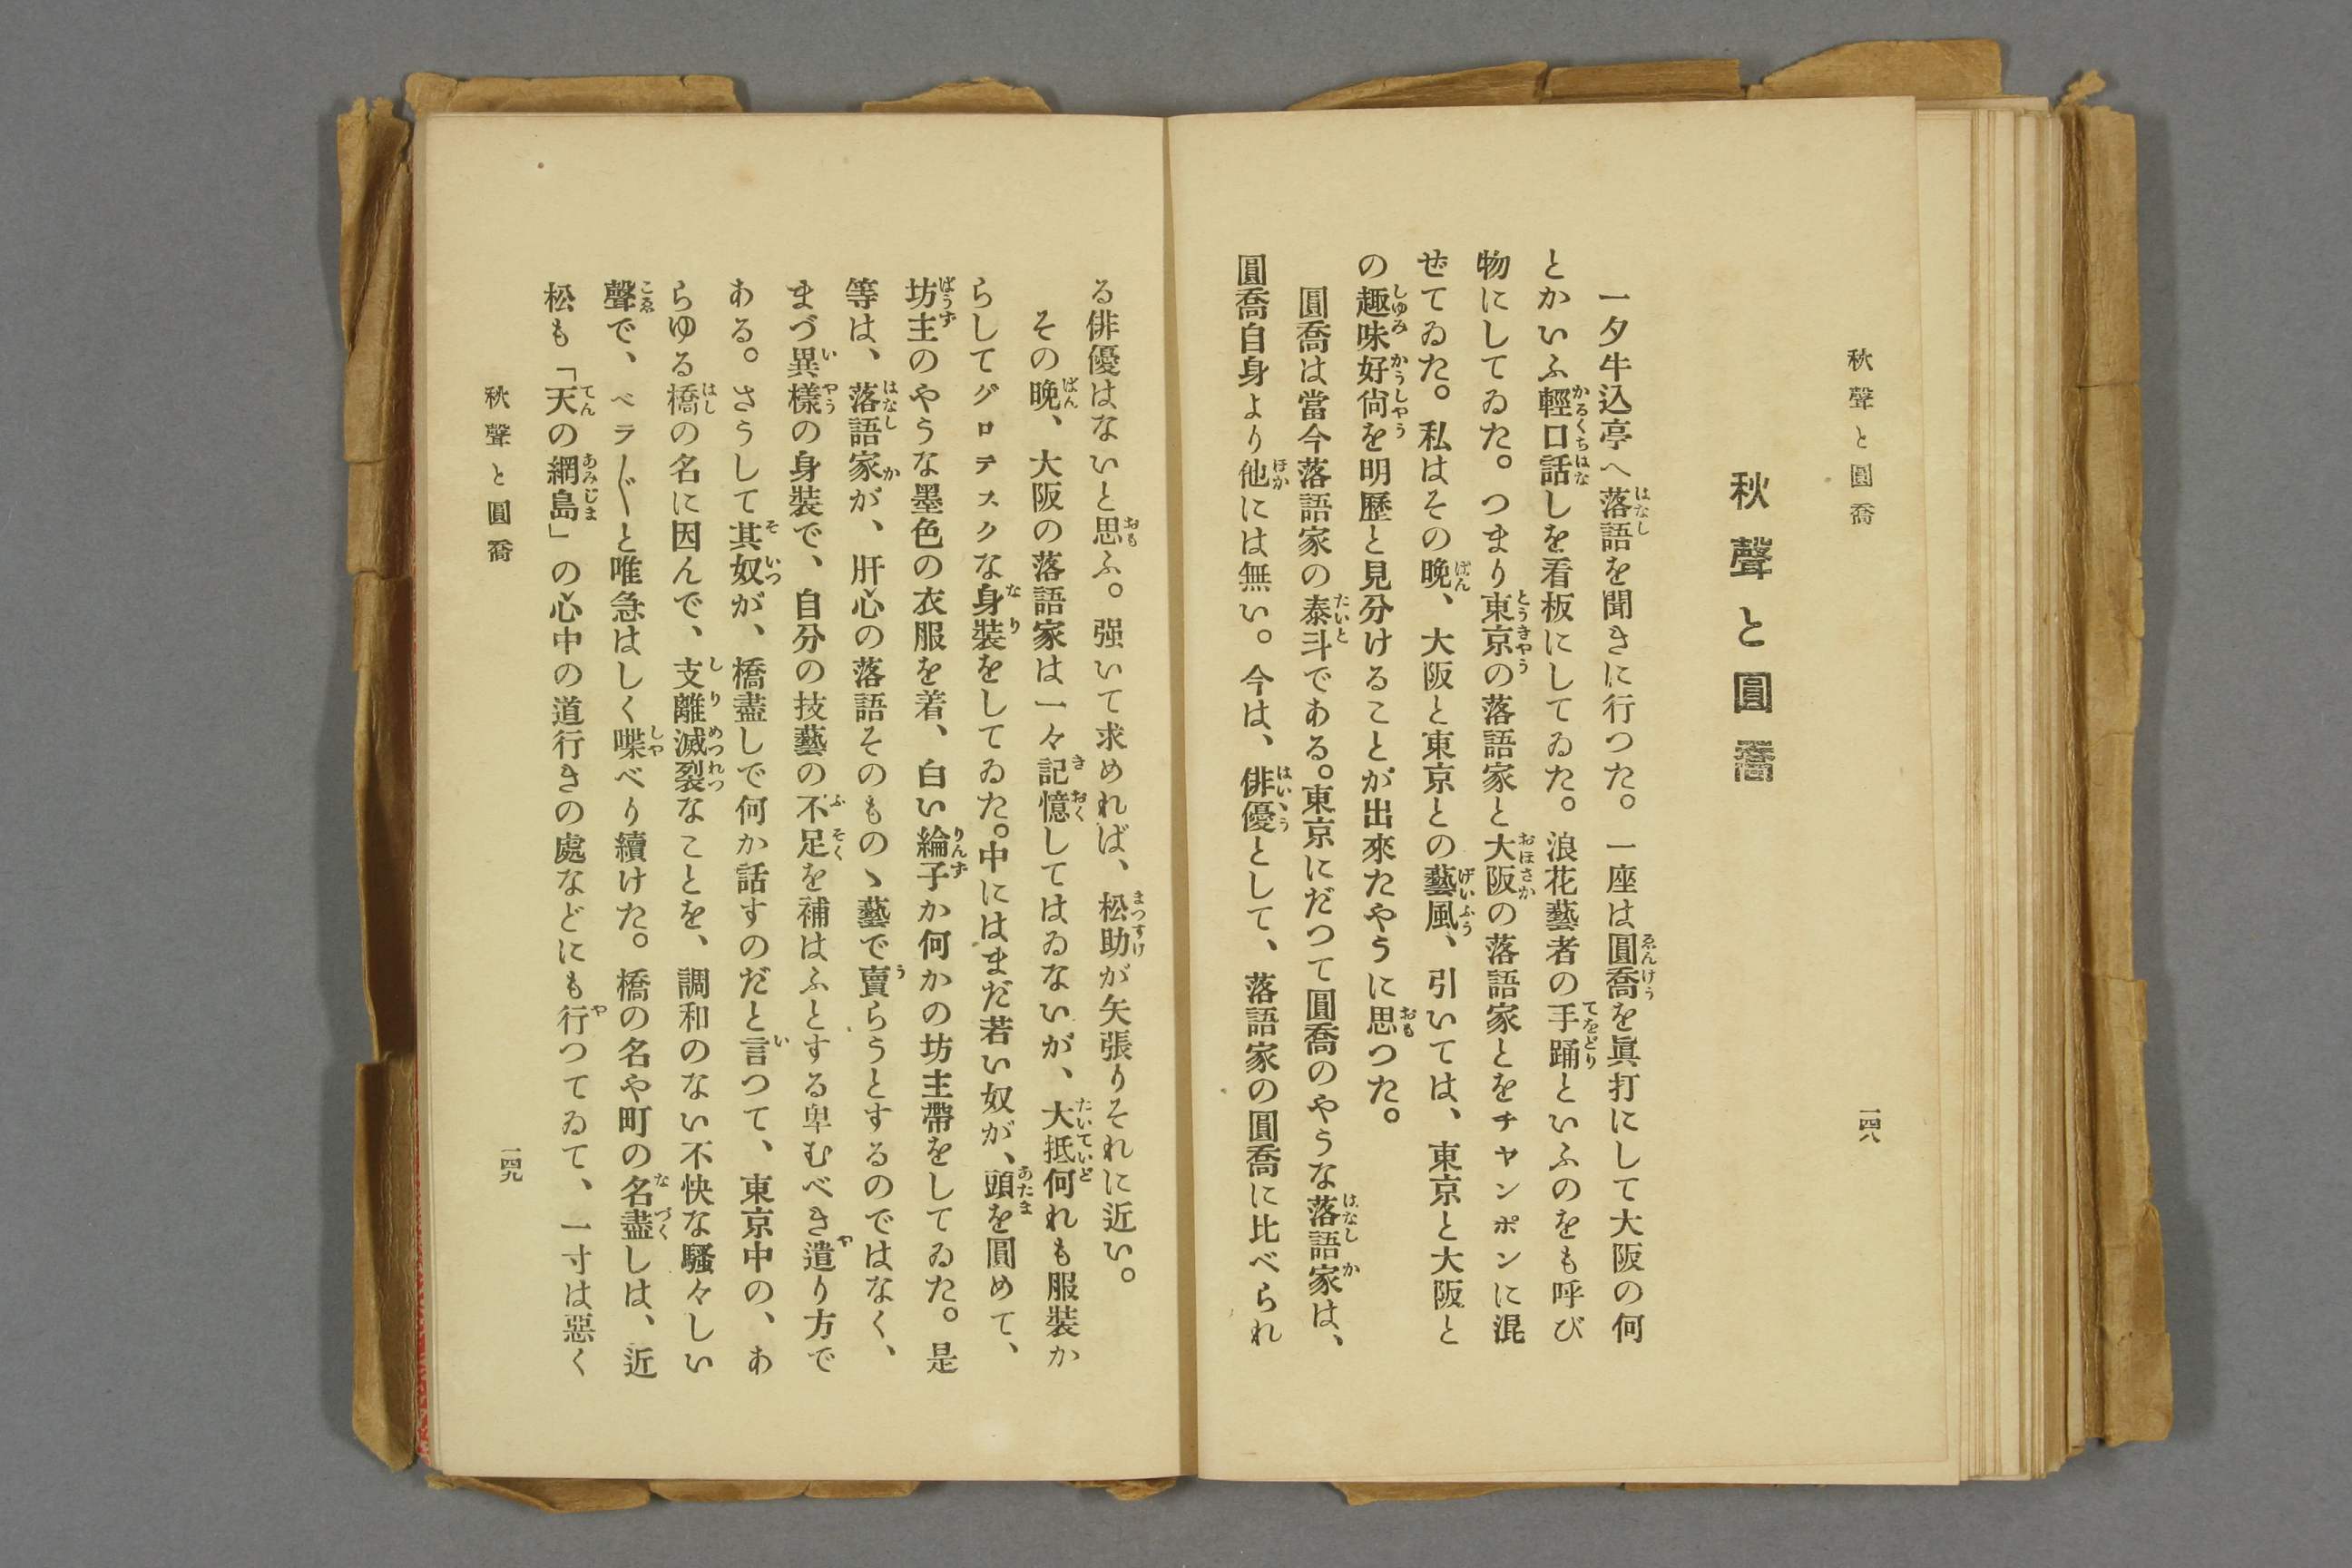 秋聲と圓喬
一四八
秋聲と圓喬
一夕牛込亭へ落語を聞きに行つた。一座は圓喬を眞打にして大阪の何
とかいふ輕口話しを看板にしてゐた。浪花藝者の手踊といふのをも呼び
物にしてゐた。つまり東京の落語家と大阪の落語家とをチヤンポンに混
ぜてゐた。私はその晩、大阪と東京との藝風、引いては、東京と大阪と
の趣味好尙を明歷と見分けることが出來たやうに思つた。
圓喬は當今落語家の泰斗である。東京にだつて圓喬のやうな落語家は、
圓喬自身より他には無い。今は、俳優として、落語家の圓喬に比べられ
る俳優はないと思ふ。强いて求めれば、松助が矢張りそれに近い。
その晩、大阪の落語家は一々記憶してはゐないが、大抵何れも服裝か
らしてグロテスクな身裝をしてゐた。中にはまだ若い奴が、頭を圓めて、
坊主のやうな墨色の衣服を着、白い綸子か何かの坊主帶をしてゐた。是
等は、落語家が、肝心の落語そのものゝ藝で賣らうとするのではなく、
まづ異樣の身裝で、自分の技藝の不足を補はふとする卑むべき遣り方で
ある。さうして其奴が、橋盡しで何か話すのだと言つて、東京中の、あ
らゆる橋の名に因んで、支離滅裂なことを、調和のない不快な騷々しい
聲で、ベラ〴〵と唯急はしく喋べり續けた。橋の名や町の名盡しは、近
松も「天の網島」の心中の道行きの處などにも行つてゐて、一寸は惡く
秋聲と圓喬
一四九